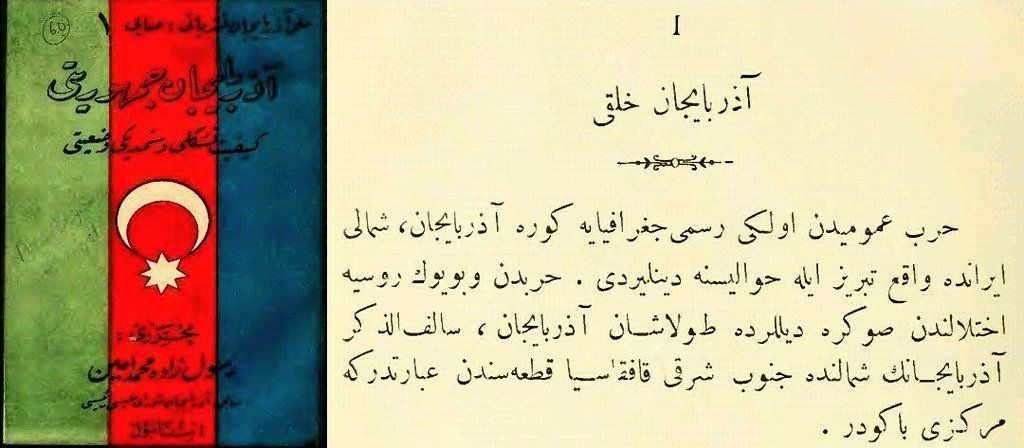 ٦٥
١
ملی آذربایجان نشریاتی : صایی
آذربایجان جمهوریتی
كیفیت تشكلی و شمدیكی وضعیتی
محرری :
رسول زاده محمد امین
سابق آذربایجان شورای ملیسی رئیسی
استانبول
I
آذربایجان خلقی
حرب عمومیدن اولكی رسمی جغرافیایه كوره آذربایجان، شمالی
ایرانده واقع تبریز ایله حوالیسنه دینلیردی . حربدن وبویوك روسیه
اختلالندن صوكره دیللرده طولاشان آذربایجان ، سالف‌الذكر
آذربایجانك شمالنده جنوب شرقی قافقاسیا قطعه‌سندن عبارتدركه
مركزی باكودر .